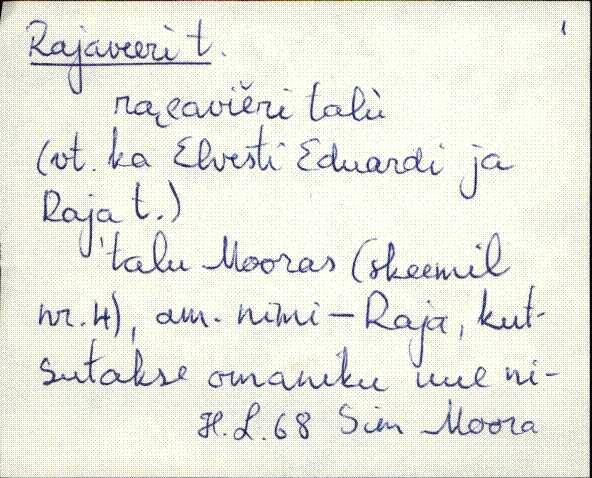 1
Rajaveeri t.
ra̬eaviěri talù
(vt. ka Elvesti Eduardi ja
Raja t.)
'talu Mooras (skeemil
nr. 4), am. nimi – Raja, kut-
sutakse omaniku uue ni-
H. L. 68 Sim Moora